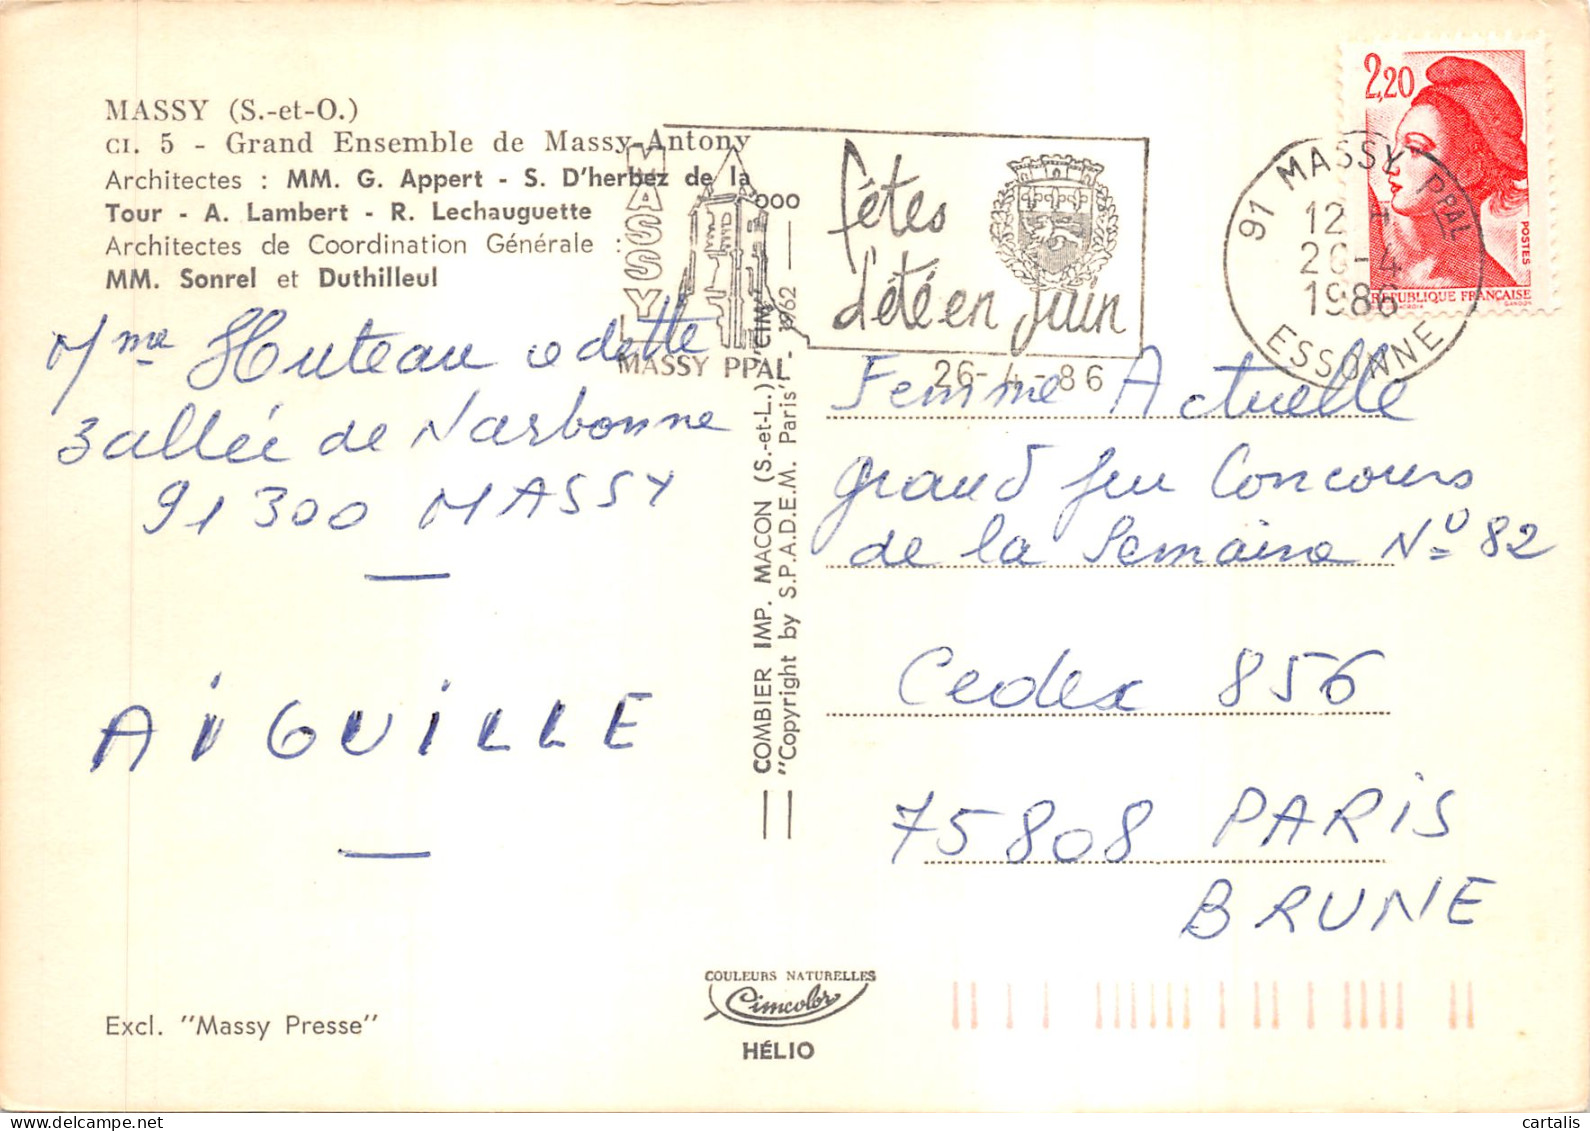 MASSY (S.-et-O.)
CI. 5 - Grand Ensemble de Massy-Antony
Architectes : MM. G. Appert - S. D'herbez de la
Tour - A. Lambert - R. Lechauguette
Architectes de Coordination Générale :
MM. Sonrel et Duthilleul
Mme Huteau odette
3 allée de Narbonne
91300 MASSY
AIGUILLE
Excl. "Massy Presse"
MASSY
MASSY PPAL
fêtes
d'été en juin
26-4-86
COMBIER IMP. MACON (S.-et-L.) "CIM"
"Copyright by S.P.A.D.E.M. Paris" - 1962
2,20
POSTES
REPUBLIQUE FRANÇAISE
91 MASSY PPAL
12 H
26-4
1986
ESSONNE
Femme Actuelle
grand jeu Concours
de la Semaine No 82
Cedex 856
75808 PARIS
BRUNE
COULEURS NATURELLES
Cimcolor
HÉLIO
cartalis
delcampe.net